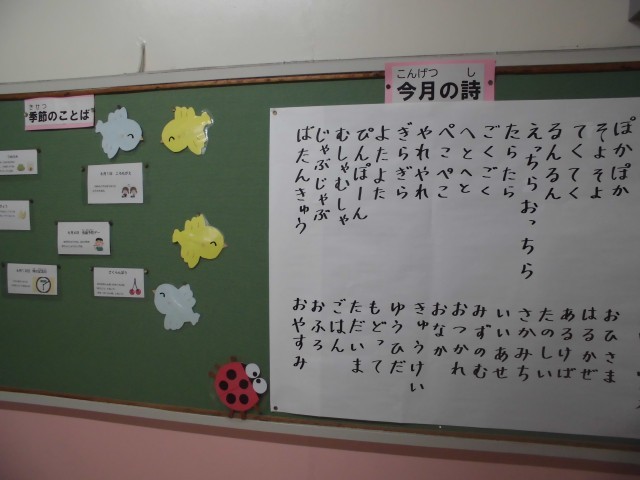 きせつ
季節のことば
こんげつ し
今月の詩
ぽかぽか おひさま
そよそよ はるかぜ
てくてく あるけば
るんるん たのしい
えっちらおっちら さかみち
たらたら いいあせ
ごくごく みずのむ
へとへと おつかれ
ぺこぺこ おなか
やれやれ きゅうけい
ぎらぎら ゆうひだ
よたよた もどって
ぴんぽーん ただいま
むしゃむしゃ ごはん
じゃぶじゃぶ おふろ
ばたんきゅう おやすみ